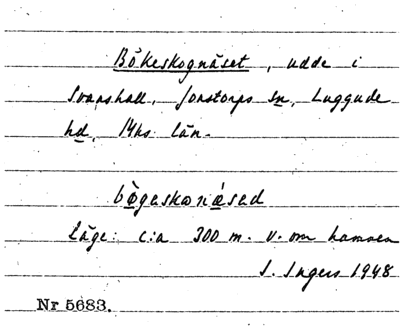 Bökeskognäset, udde i
Svanshall, Jonstorps sn, Luggude
hd, Mhs län.
bø̀geskɷnǽsed
Läge: c:a 300 m. v. om hamnen
I. Ingers 1948
Nr 5683.